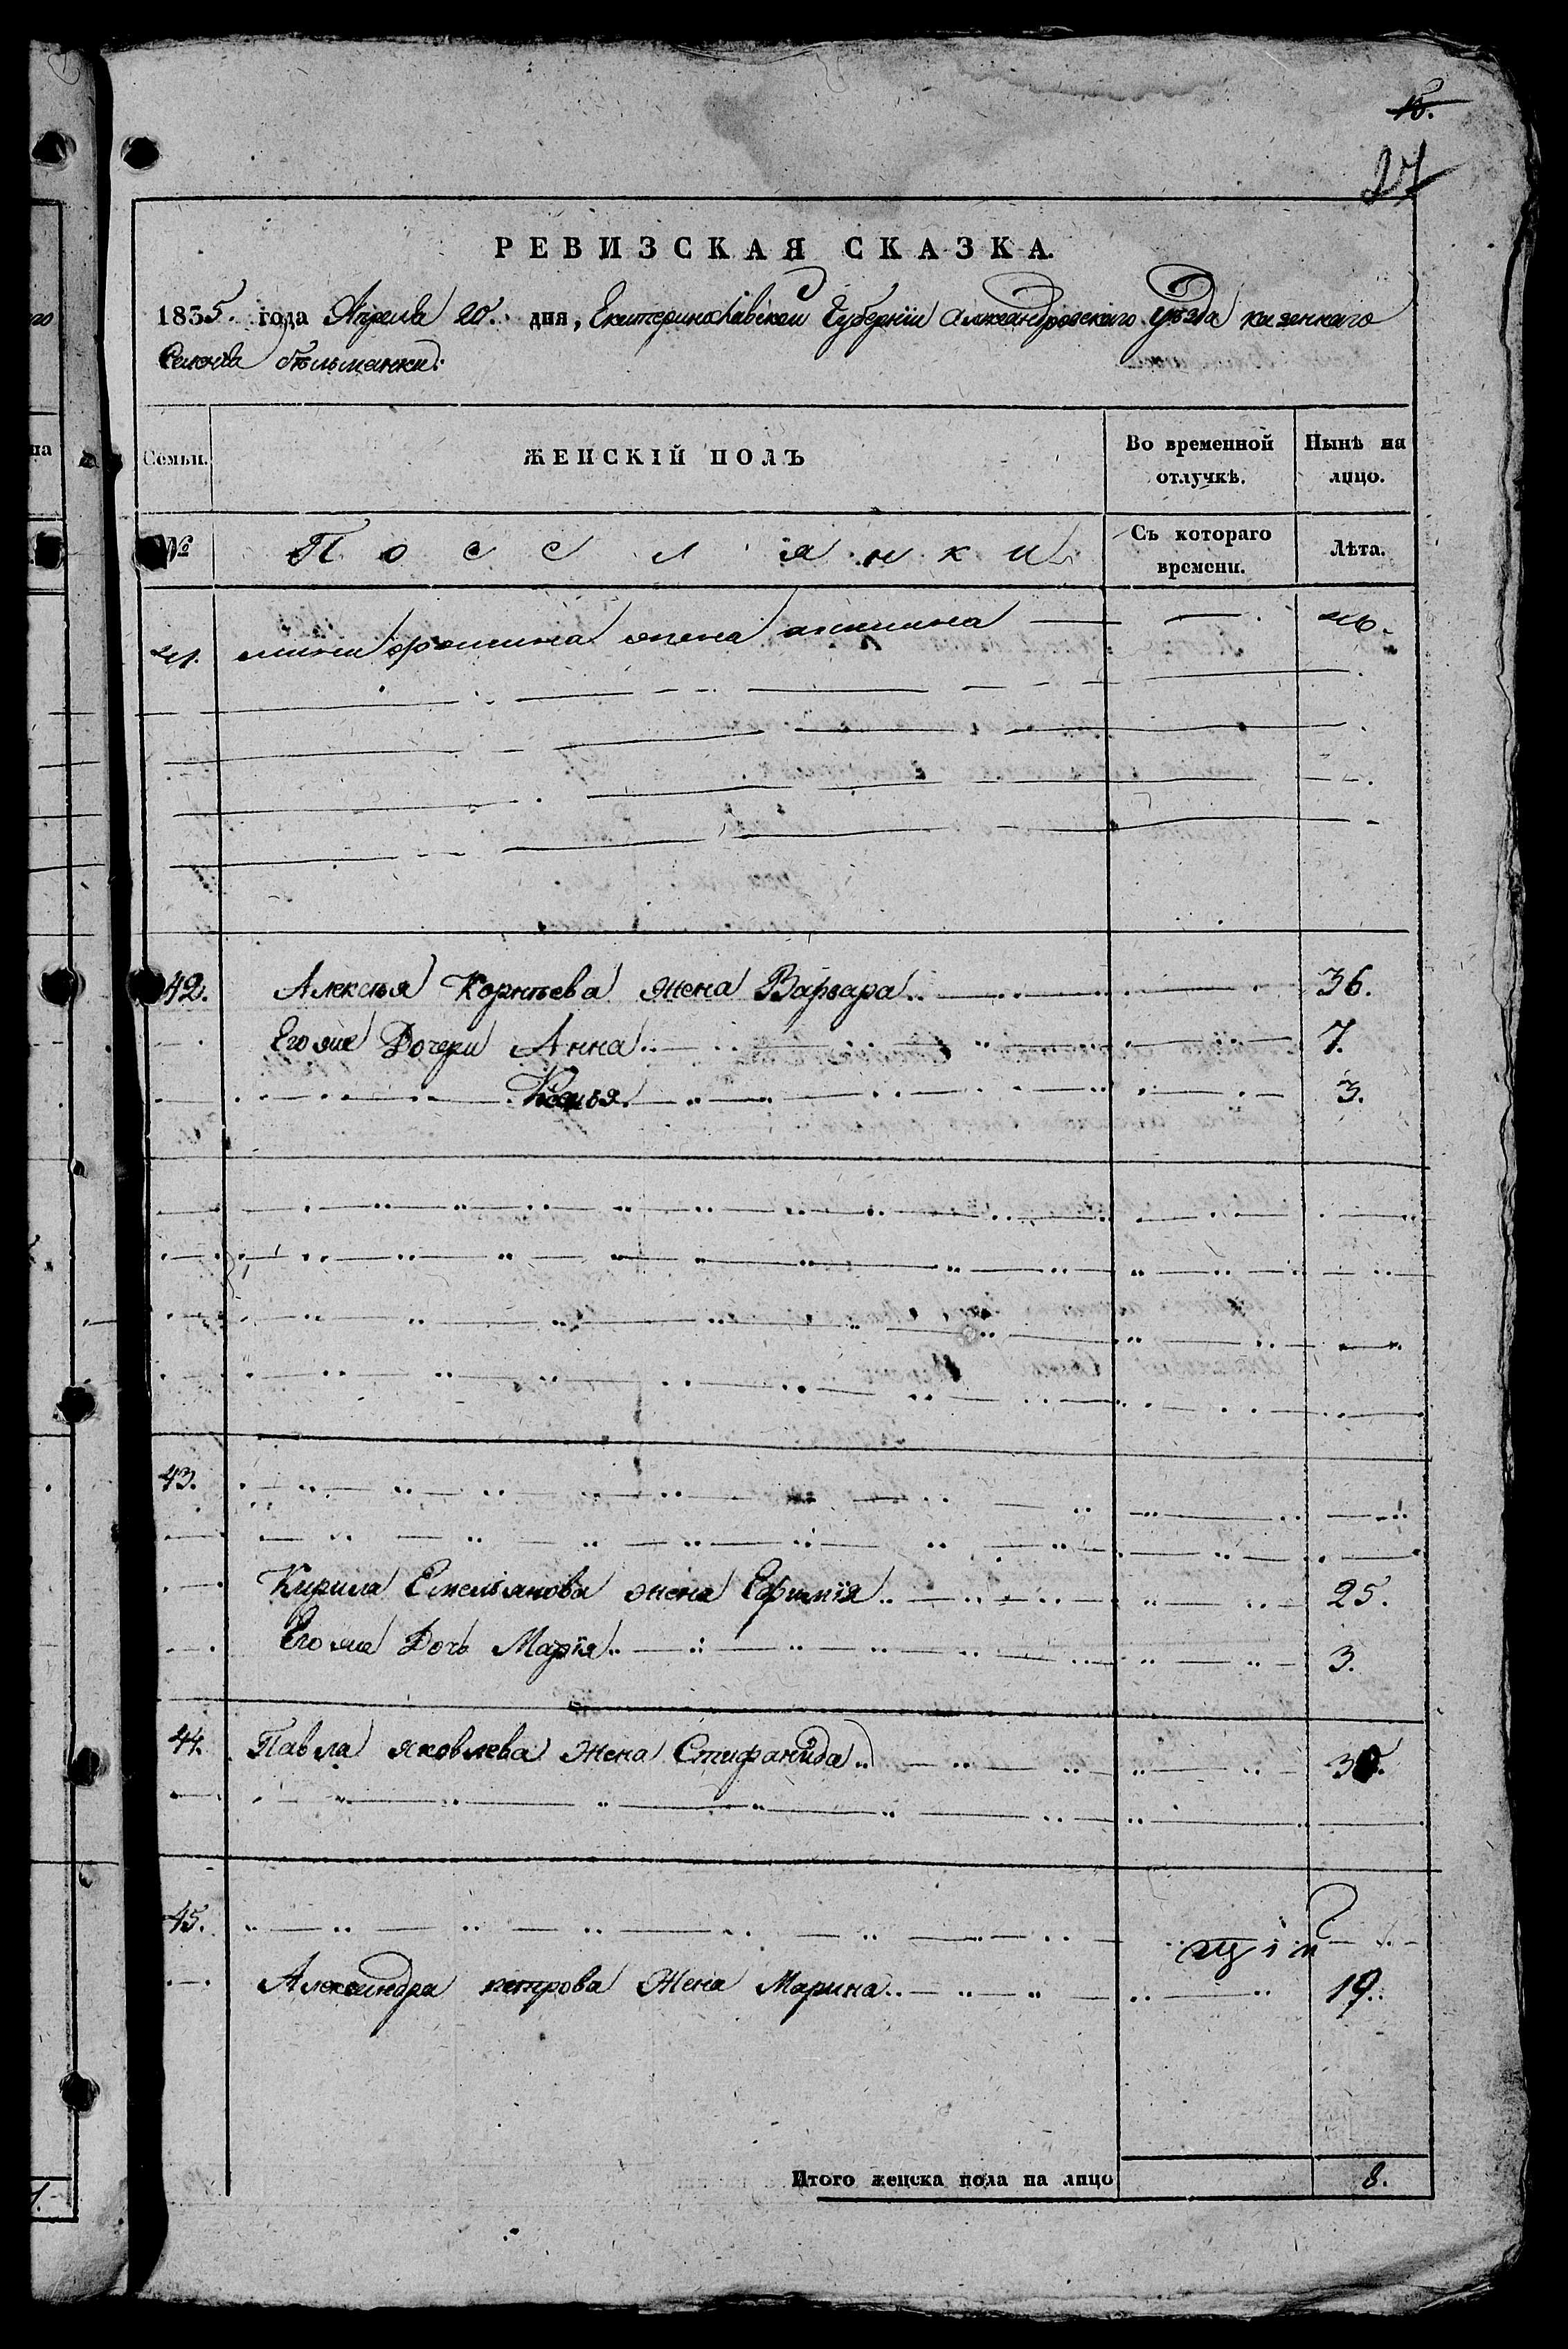 16.
27
РЕВИЗСКАЯ СКАЗКА.
1835. года Апреля 20. дня, Екатеринославской Губерніи Александровскаго уѣзда казеннаго
Селенія бѣльманки:
Семьи. ЖЕНСКІЙ ПОЛЪ Во временной отлучкѣ. Нынѣ на лицо.
№ Поселянки Съ котораго времени. Лѣта.
41. жена 46.
42. Алексѣя Корнѣева жена Варвара 36.
Его же Дочери Анна 7.
Ксенья 3.
43.
Кирила Емельянова жена Ефимія 25.
Его же Дочь Марія 3.
44. Павла яковлева Жена Стифанида 30.
45.
щій
Александра петрова Жена Марина 19.
Итого женска пола на лицо 8.